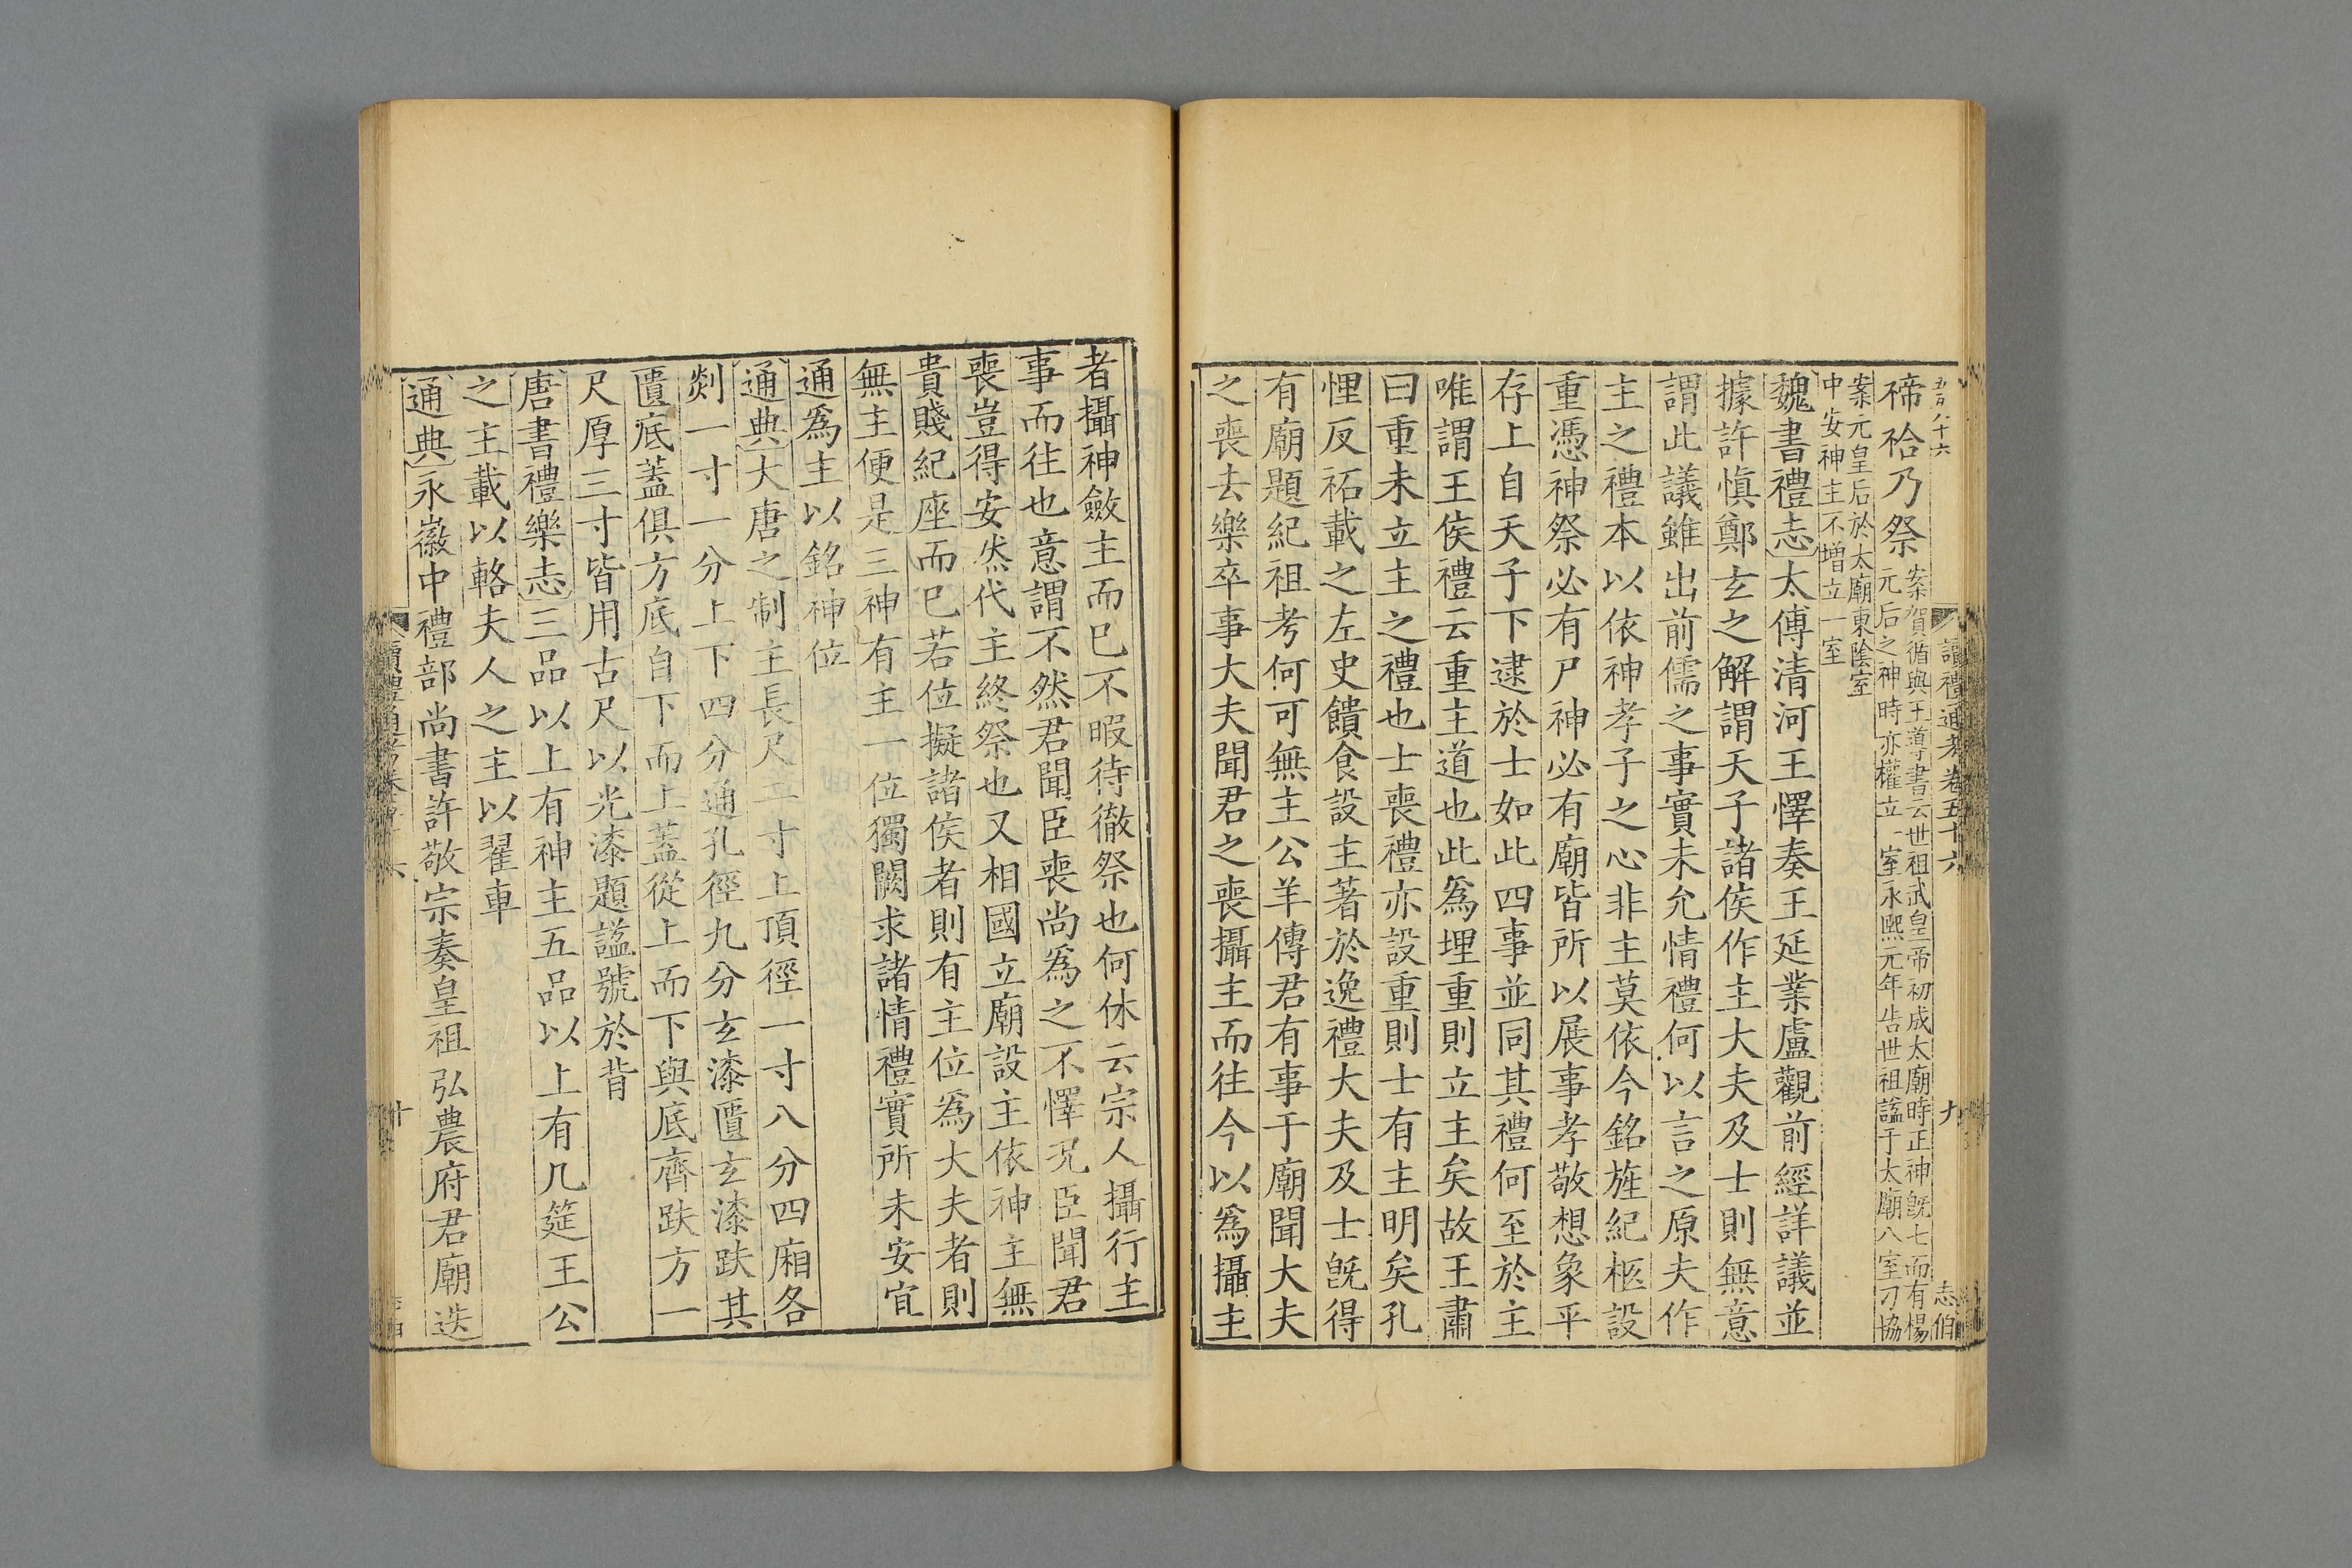 五百八十六
讀禮通考卷五十六
九
志伯
禘祫乃祭案賀循與王導書云世祖武皇帝初成太廟時正神旣七而有楊
元后之神時亦權立一室永熙元年告世祖諡于太廟八室刁協
案元皇后於太廟東陰室
中安神主不增立一室
魏書禮志太傅清河王懌奏王延業盧觀前經詳議並
據許慎鄭玄之解謂天子諸侯作主大夫及士則無意
謂此議雖出前儒之事實未允情禮何以言之原夫作
主之禮本以依神孝子之心非主莫依今銘旌紀柩設
重憑神祭必有尸神必有廟皆所以展事孝敬想象平
存上自天子下逮於士如此四事並同其禮何至於主
唯謂王侯禮云重主道也此爲埋重則立主矣故王肅
曰重未立主之禮也士喪禮亦設重則士有主明矣孔
悝反祏載之左史饋食設主著於逸禮大夫及士旣得
有廟題紀祖考何可無主公羊傳君有事于廟聞大夫
之喪去樂卒事大夫聞君之喪攝主而往今以爲攝主
者攝神斂主而已不暇待徹祭也何休云宗人攝行主
事而往也意謂不然君聞臣喪尚爲之不懌況臣聞君
喪豈得安然代主終祭也又相國立廟設主依神主無
貴賤紀座而已若位擬諸侯者則有主位爲大夫者則
無主便是三神有主一位獨闕求諸情禮實所未安宜
通爲主以銘神位
通典大唐之制主長尺二寸上頂徑一寸八分四廂各
剡一寸一分上下四分通孔徑九分玄漆匱玄漆趺其
匱底蓋俱方底自下而上蓋從上而下與底齊趺方一
尺厚三寸皆用古尺以光漆題諡號於背
唐書禮樂志三品以上有神主五品以上有几筵王公
之主載以輅夫人之主以翟車
通典永徽中禮部尚書許敬宗奏皇祖弘農府君廟迭
讀禮通考卷五十六
十